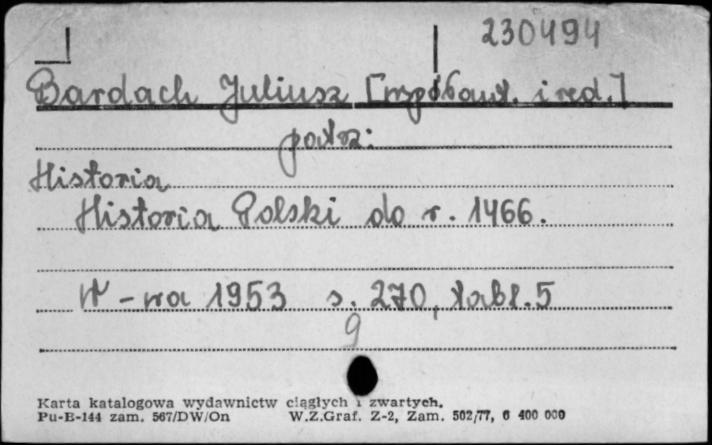 230494
Bardach Juliusz [współaut. i red.]
patrz:
Historia
Historia Polski do r. 1466.
W-wa 1953 s. 270, tabl. 5
9
Karta katalogowa wydawnictw ciągłych i zwartych.
Pu-B-144 zam. 567/DW/On W.Z.Graf. Z-2, Zam. 502/77, 6 400 000